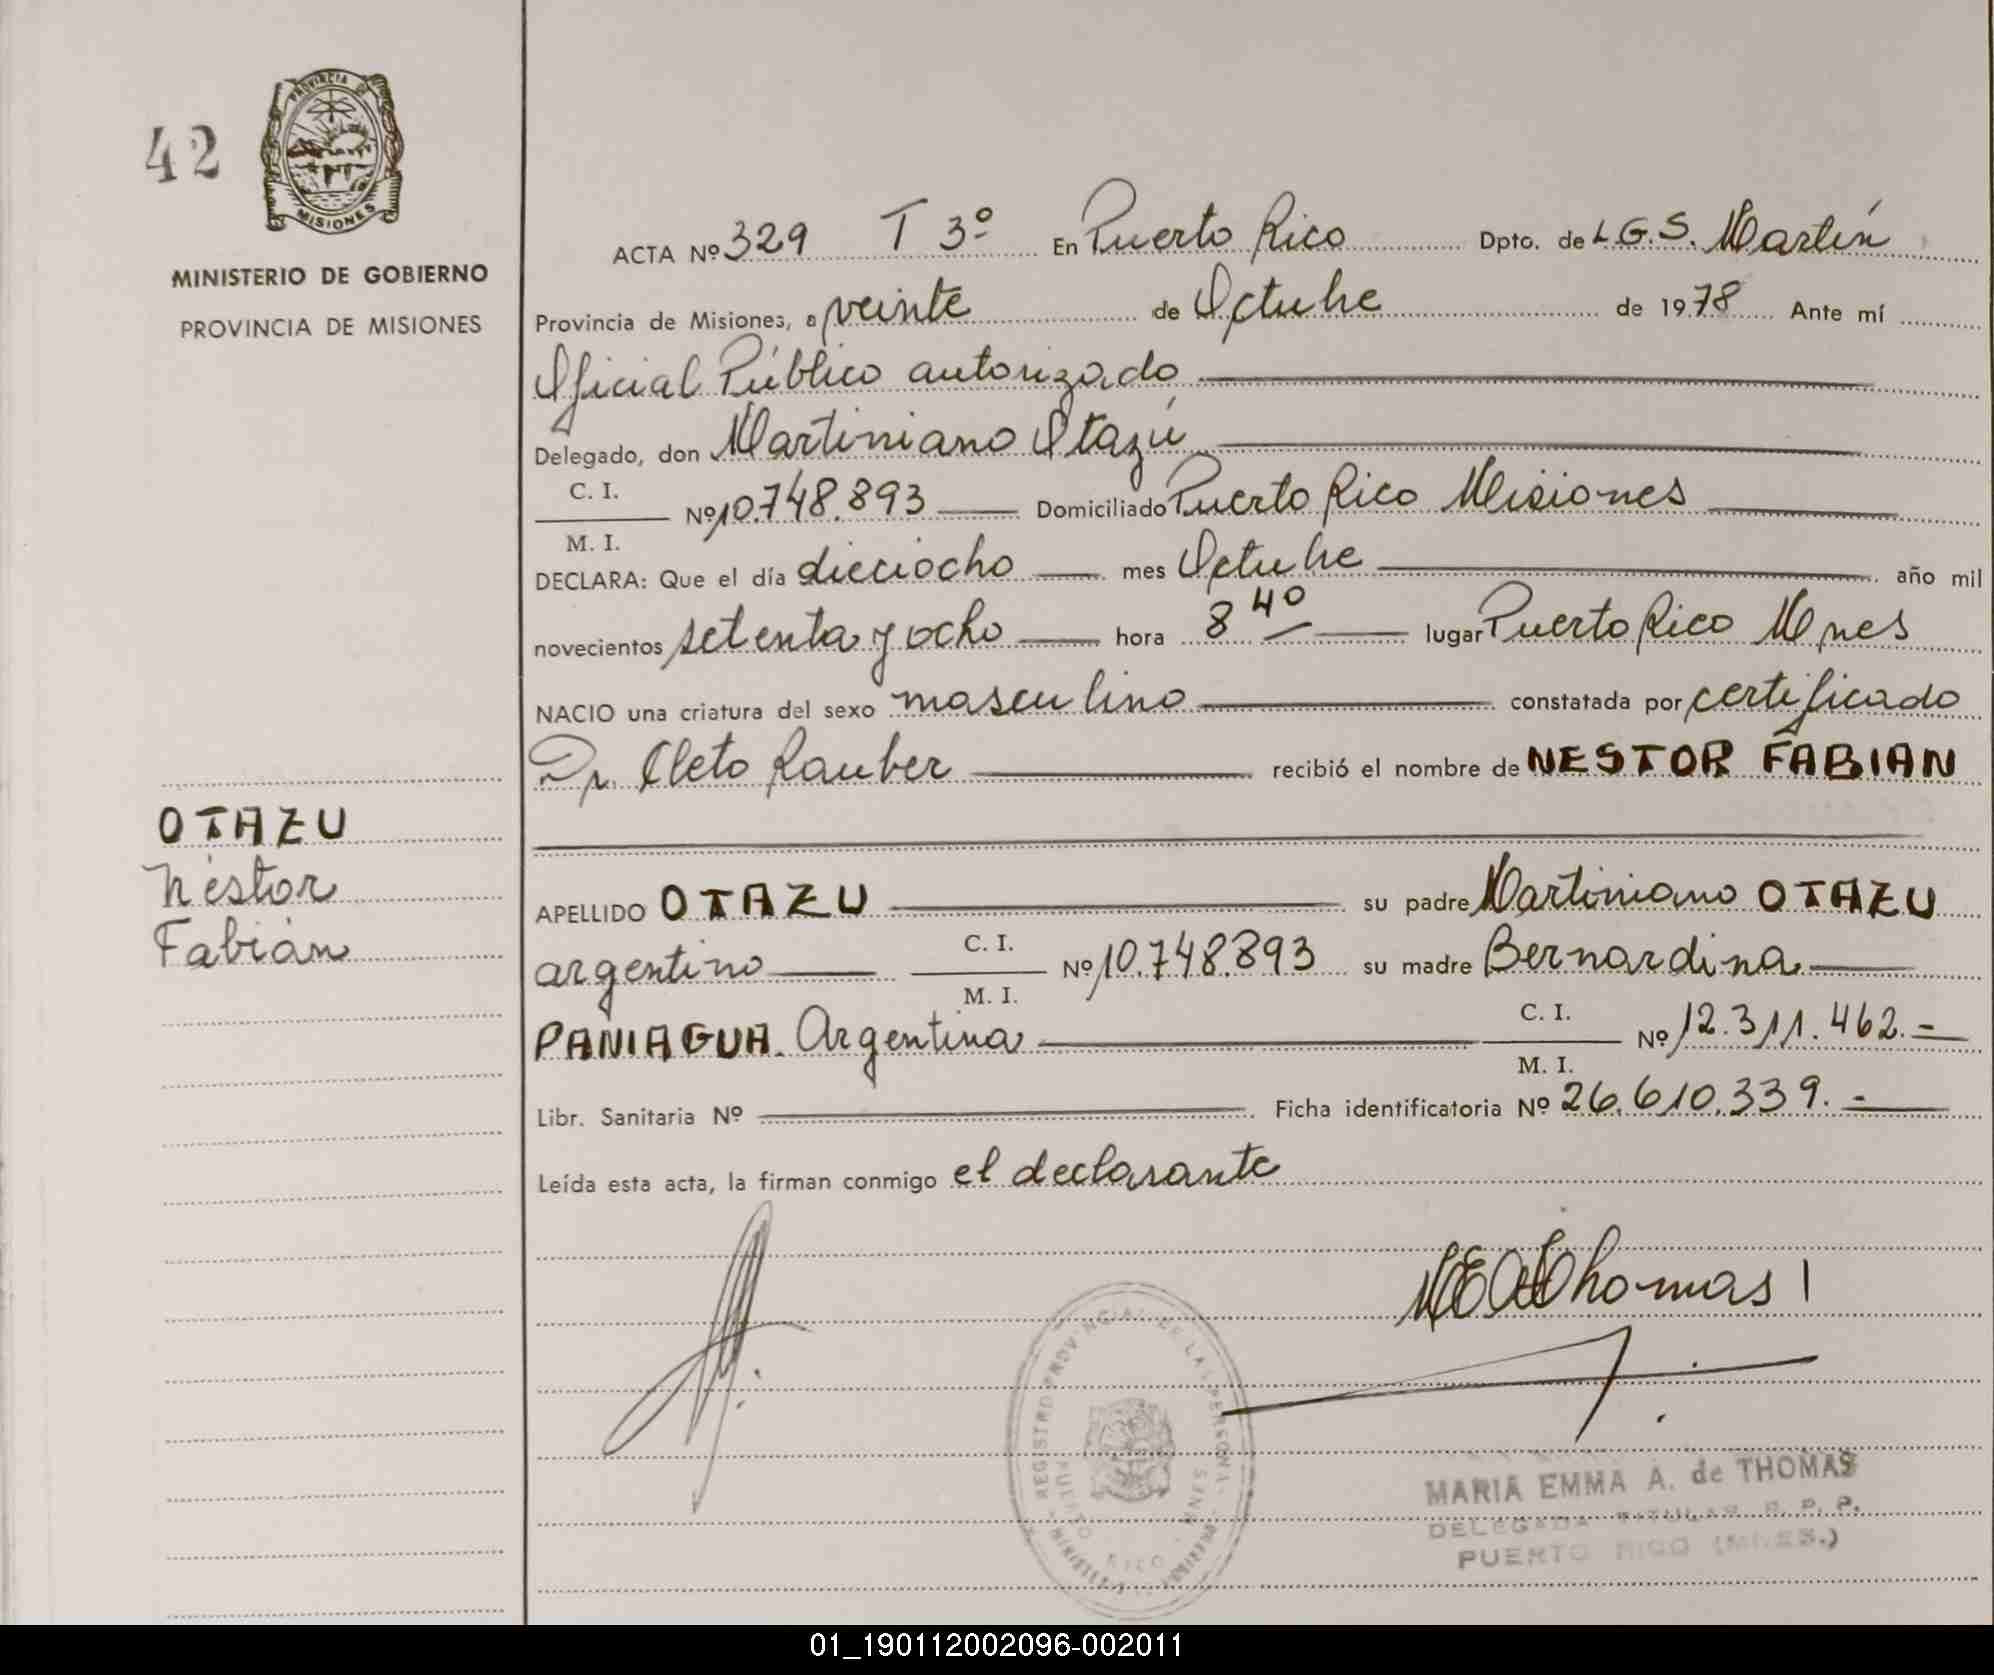 42
PROVINCIA DE
MISIONES
MINISTERIO DE GOBIERNO
PROVINCIA DE MISIONES
OTAZU
Néstor
Fabián
ACTA Nº 329 T 3º En Puerto Rico Dpto. de L.G.S. Martín
Provincia de Misiones, a veinte de Octubre de 1978 Ante mí
Oficial Público autorizado
Delegado, don Martiniano Otazú
C. I.
M. I.
Nº 10.748.893 Domiciliado Puerto Rico Misiones
DECLARA: Que el día dieciocho mes Octubre año mil
novecientos setenta y ocho hora 8 40 lugar Puerto Rico Mnes
NACIO una criatura del sexo masculino constatada por certificado
Dr. Cleto Rauber recibió el nombre de NESTOR FABIAN
APELLIDO OTAZU su padre Martiniano OTAZU
argentino C. I.
M. I.
Nº 10.748.893 su madre Bernardina
PANIAGUA. Argentina C. I.
M. I.
Nº 12.311.462.-
Libr. Sanitaria Nº Ficha identificatoria Nº 26.610.339.-
Leída esta acta, la firman conmigo el declarante
MEAThomas
REGISTRO PROVINCIAL DE LAS PERSONAS
PUERTO RICO - MNES
MARIA EMMA A. de THOMAS
DELEGADA TITULAR R. P. P.
PUERTO RICO (MNES.)
01_190112002096-002011